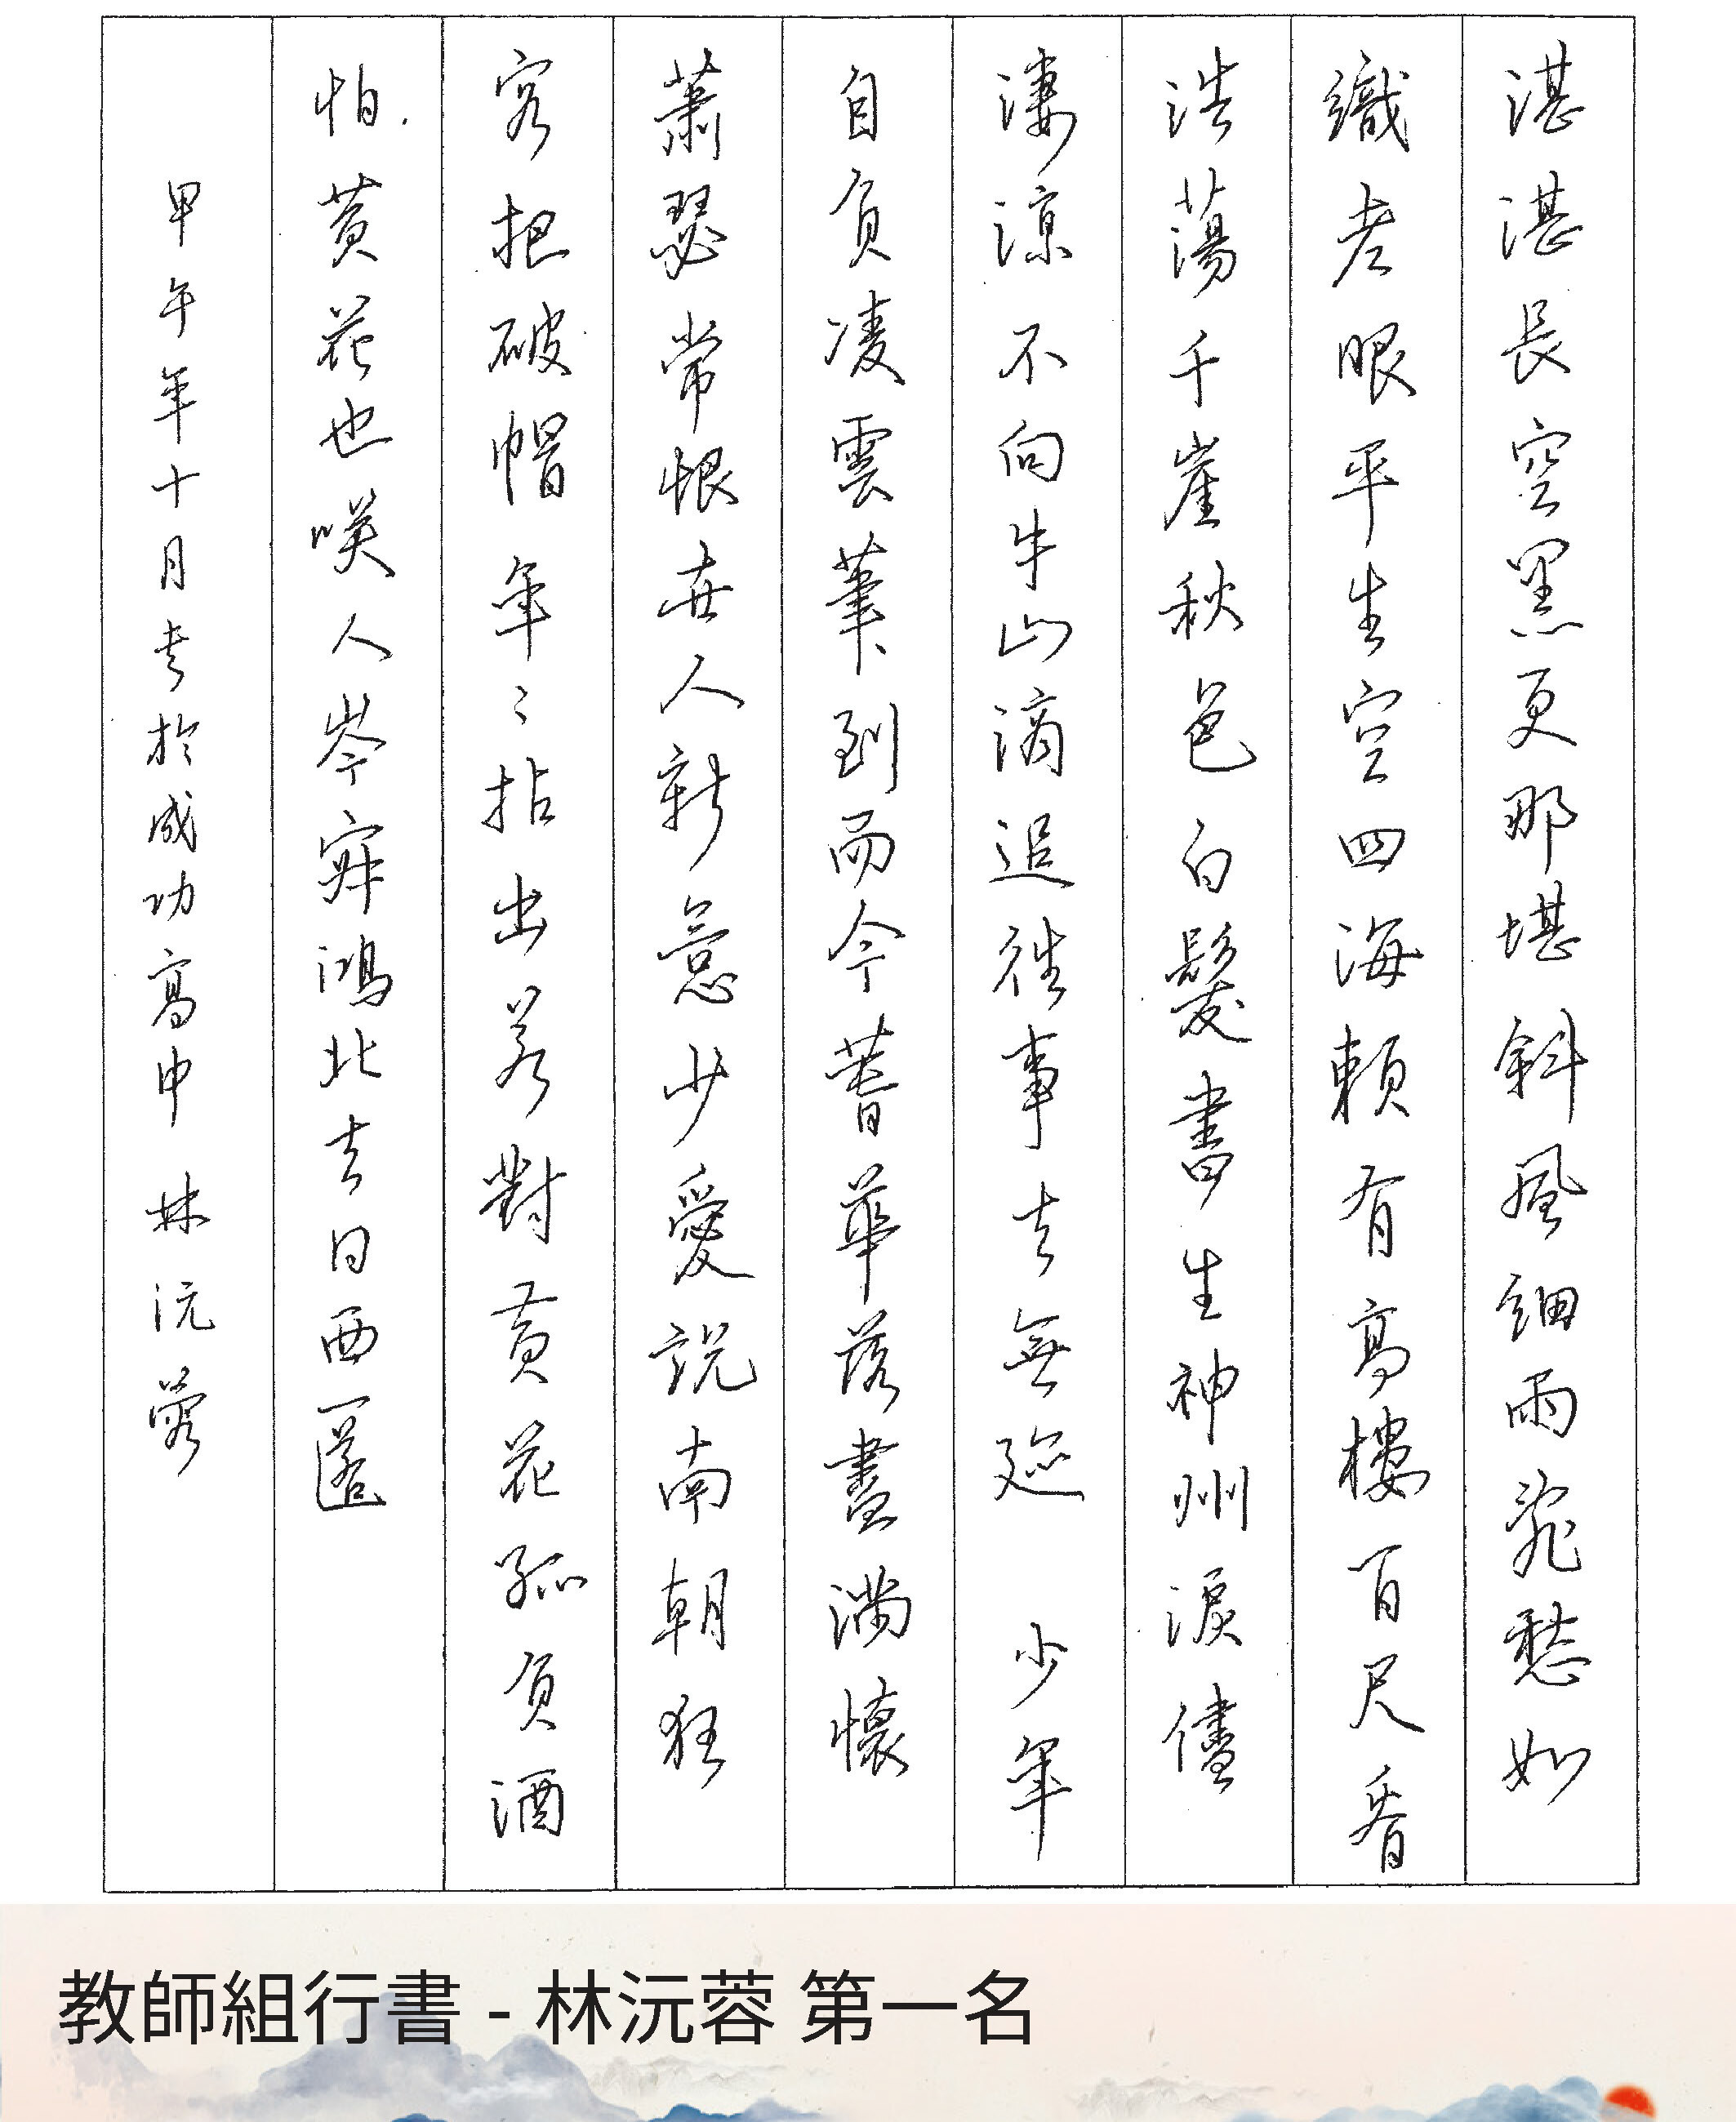 湛湛長空黑更那堪斜風細雨亂愁如
織老眼平生空四海賴有高樓百尺看
浩蕩千崖秋色白髮書生神州淚儘
淒涼不向牛山滴追往事去無迹 少年
自負凌雲筆到而今萅華落盡滿懷
蕭瑟常恨世人新意少愛說南朝狂
客把破帽年〻拈出若對黃花孤負酒
怕黃花也咲人岑寂鴻北去日西匿
甲午年十月書於成功高中 林沅蓉
教師組行書 - 林沅蓉 第一名